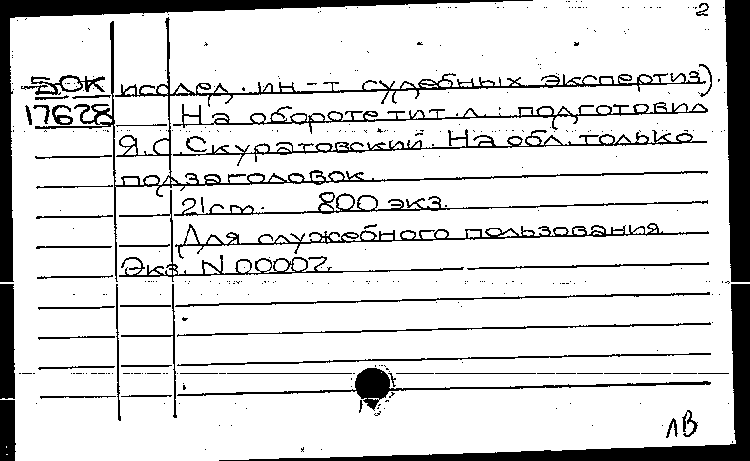 2
БОК исслед. ин-т судебных экспертиз).
17628 На обороте тит. л.: подготовил
Я.С. Скуратовский. На обл. только
подзаголовок.
21 cm. 800 экз.
Для служебного пользования.
Экз. N 00002.
ЛВ